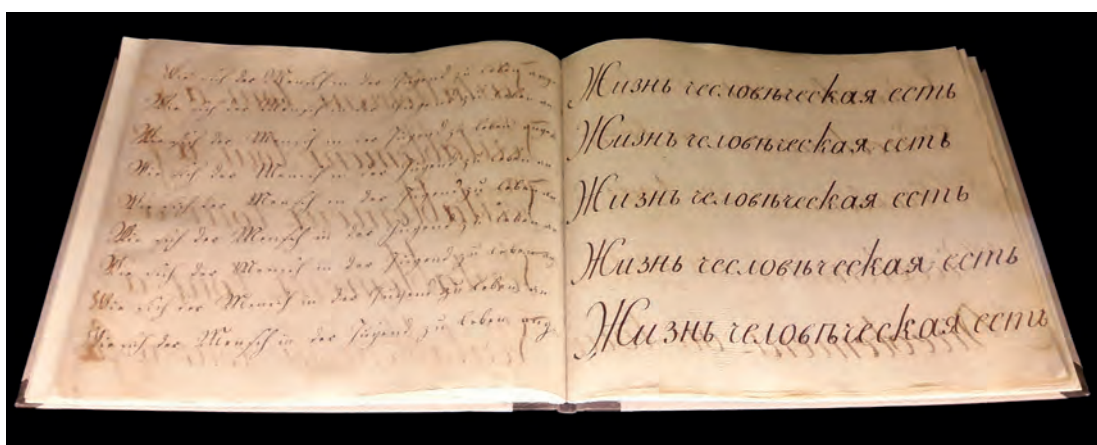 Wie sich der Mensch in der Jugend zu leben ange
Wie sich der Mensch in der Jugend zu leben an
Wie sich der Mensch in der Jugend zu leben ange
Wie sich der Mensch in der Jugend zu leben an
Wie sich der Mensch in der Jugend zu leben an
Wie sich der Mensch in der Jugend zu leben an
Wie sich der Mensch in der Jugend zu leben an
Wie sich der Mensch in der Jugend zu leben an
Wie sich der Mensch in der Jugend zu leben ang
Жизнь человѣческая есть
Жизнь человѣческая есть
Жизнь человѣческая есть
Жизнь человѣческая есть
Жизнь человѣческая есть